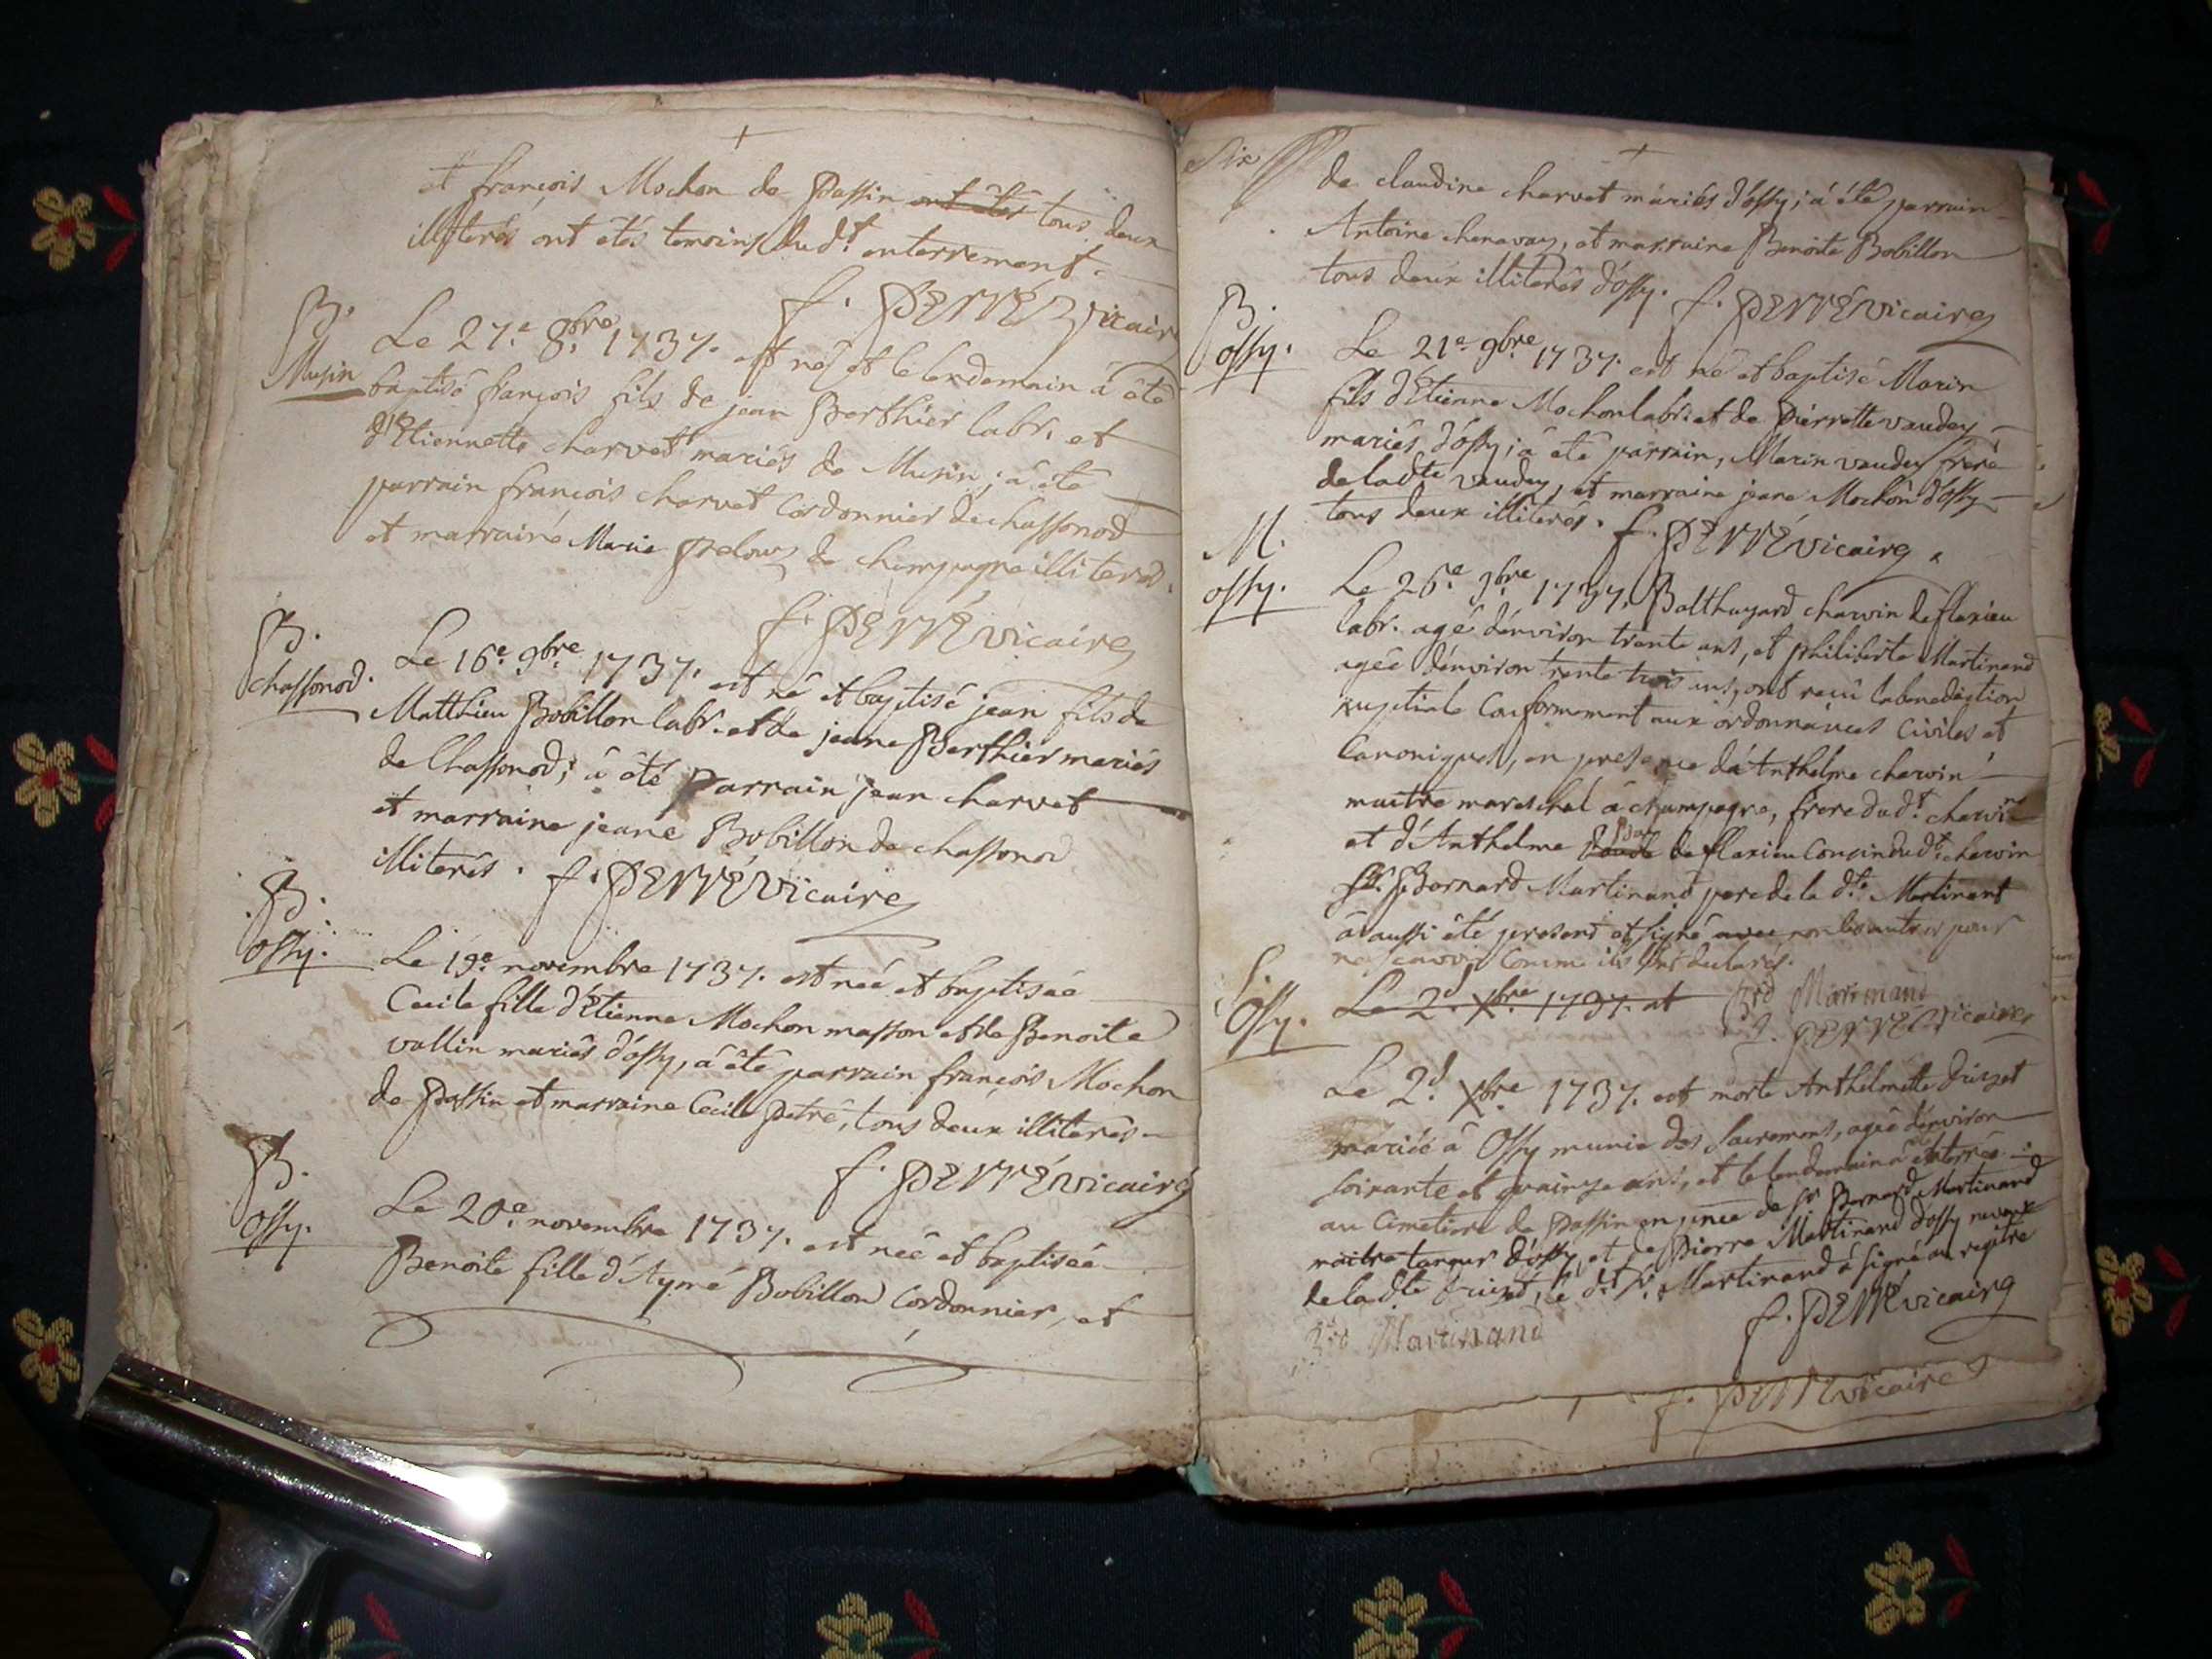 et françois Mochon de Passin ont étés tous deux
illiterés ont étés temoins dudt. enterrement.
f. PERRÉ vicaire
B.
Musin
Le 27e. 8bre. 1737. est né et le lendemain á été
baptisé françois fils de jean Berthier labr. et
d'Etiennette charvet mariés de Musin; á été
parrain françois charvet Cordonnier de chassonod
et marraine Marie de champagne illiterés.
f. PERRÉ vicaire
B.
chassonod.
Le 16e. 9bre. 1737. est né et baptisé jean fils de
Matthieu Bobillon labr. et de jeane Berthier mariés
de Chassonod; á été parrain jean charvet
et marraine jeane Bobillon de chassonod
illiterés. f. PERRÉ vicaire
B.
Ossy.
Le 19e. novembre 1737. est née et baptisée
Cecile fille d'Etienne Mochon masson et de Benoite
vallin mariés d'ossy, á été parrain françois Mochon
de Passin et marraine Cecile Petré, tous deux illiterés
f. PERRÉ vicaire
B.
Ossy.
Le 20e. novembre 1737. est née et baptisée
Benoite fille d'Aymé Bobillon Cordonnier, et
Six
de claudine charvet mariés d'ossy; á été parrain
Antoine chenavay, et marraine Benoite Bobillon
tous deux illiterés d'ossy. f. PERRÉ vicaire
B.
ossy.
Le 21e. 9bre. 1737. est né et baptisé Marin
fils d'Etienne Mochon labr. et de Pierrette vaudey
mariés d'ossy; á été parrain, Marin vaudey frere
de ladte vaudey, et marraine jeane Mochon d'ossy
tous deux illiterés. f. PERRÉ vicaire
M.
ossy.
Le 26e. 9bre. 1737. Balthazard charvin de flaxieu
labr. agé d'environ trente ans, et philiberte Martinand
agée d'environ trente trois ans, ont reçû la benediction
nuptiale Conformement aux ordonnances Civiles et
Canoniques, en presence d'Anthelme charvin
maitre mareschal á champagne, frere dudt. charvin
et d'Anthelme de flaxieu Cousin dudt. charvin
Sr. Bernard Martinand pere de la dte. Martinant
á aussi été present et signé avec non les autres pour
ne sçavoir Comme ils ont declarés.
Brd Martinand
f. PERRÉ vicaire
S.
Ossy.
Le 2d. Xbre. 1737. et
Le 2d. Xbre. 1737. est morte Anthelmette
mariée á Ossy munie des Sacrements, agée d'environ
soixante et quainze ans, et le lendemain á été enterrée
au Cimetiere de Passin en pnce de Sr Bernard Martinand
maitre taneur d'ossy, et de Pierre Martinand d'ossy neveux
de ladte le dt. Sr. Martinand á signé au regitre
Brd Martinand
f. PERRÉ vicaire
f. PERRÉ vicaire